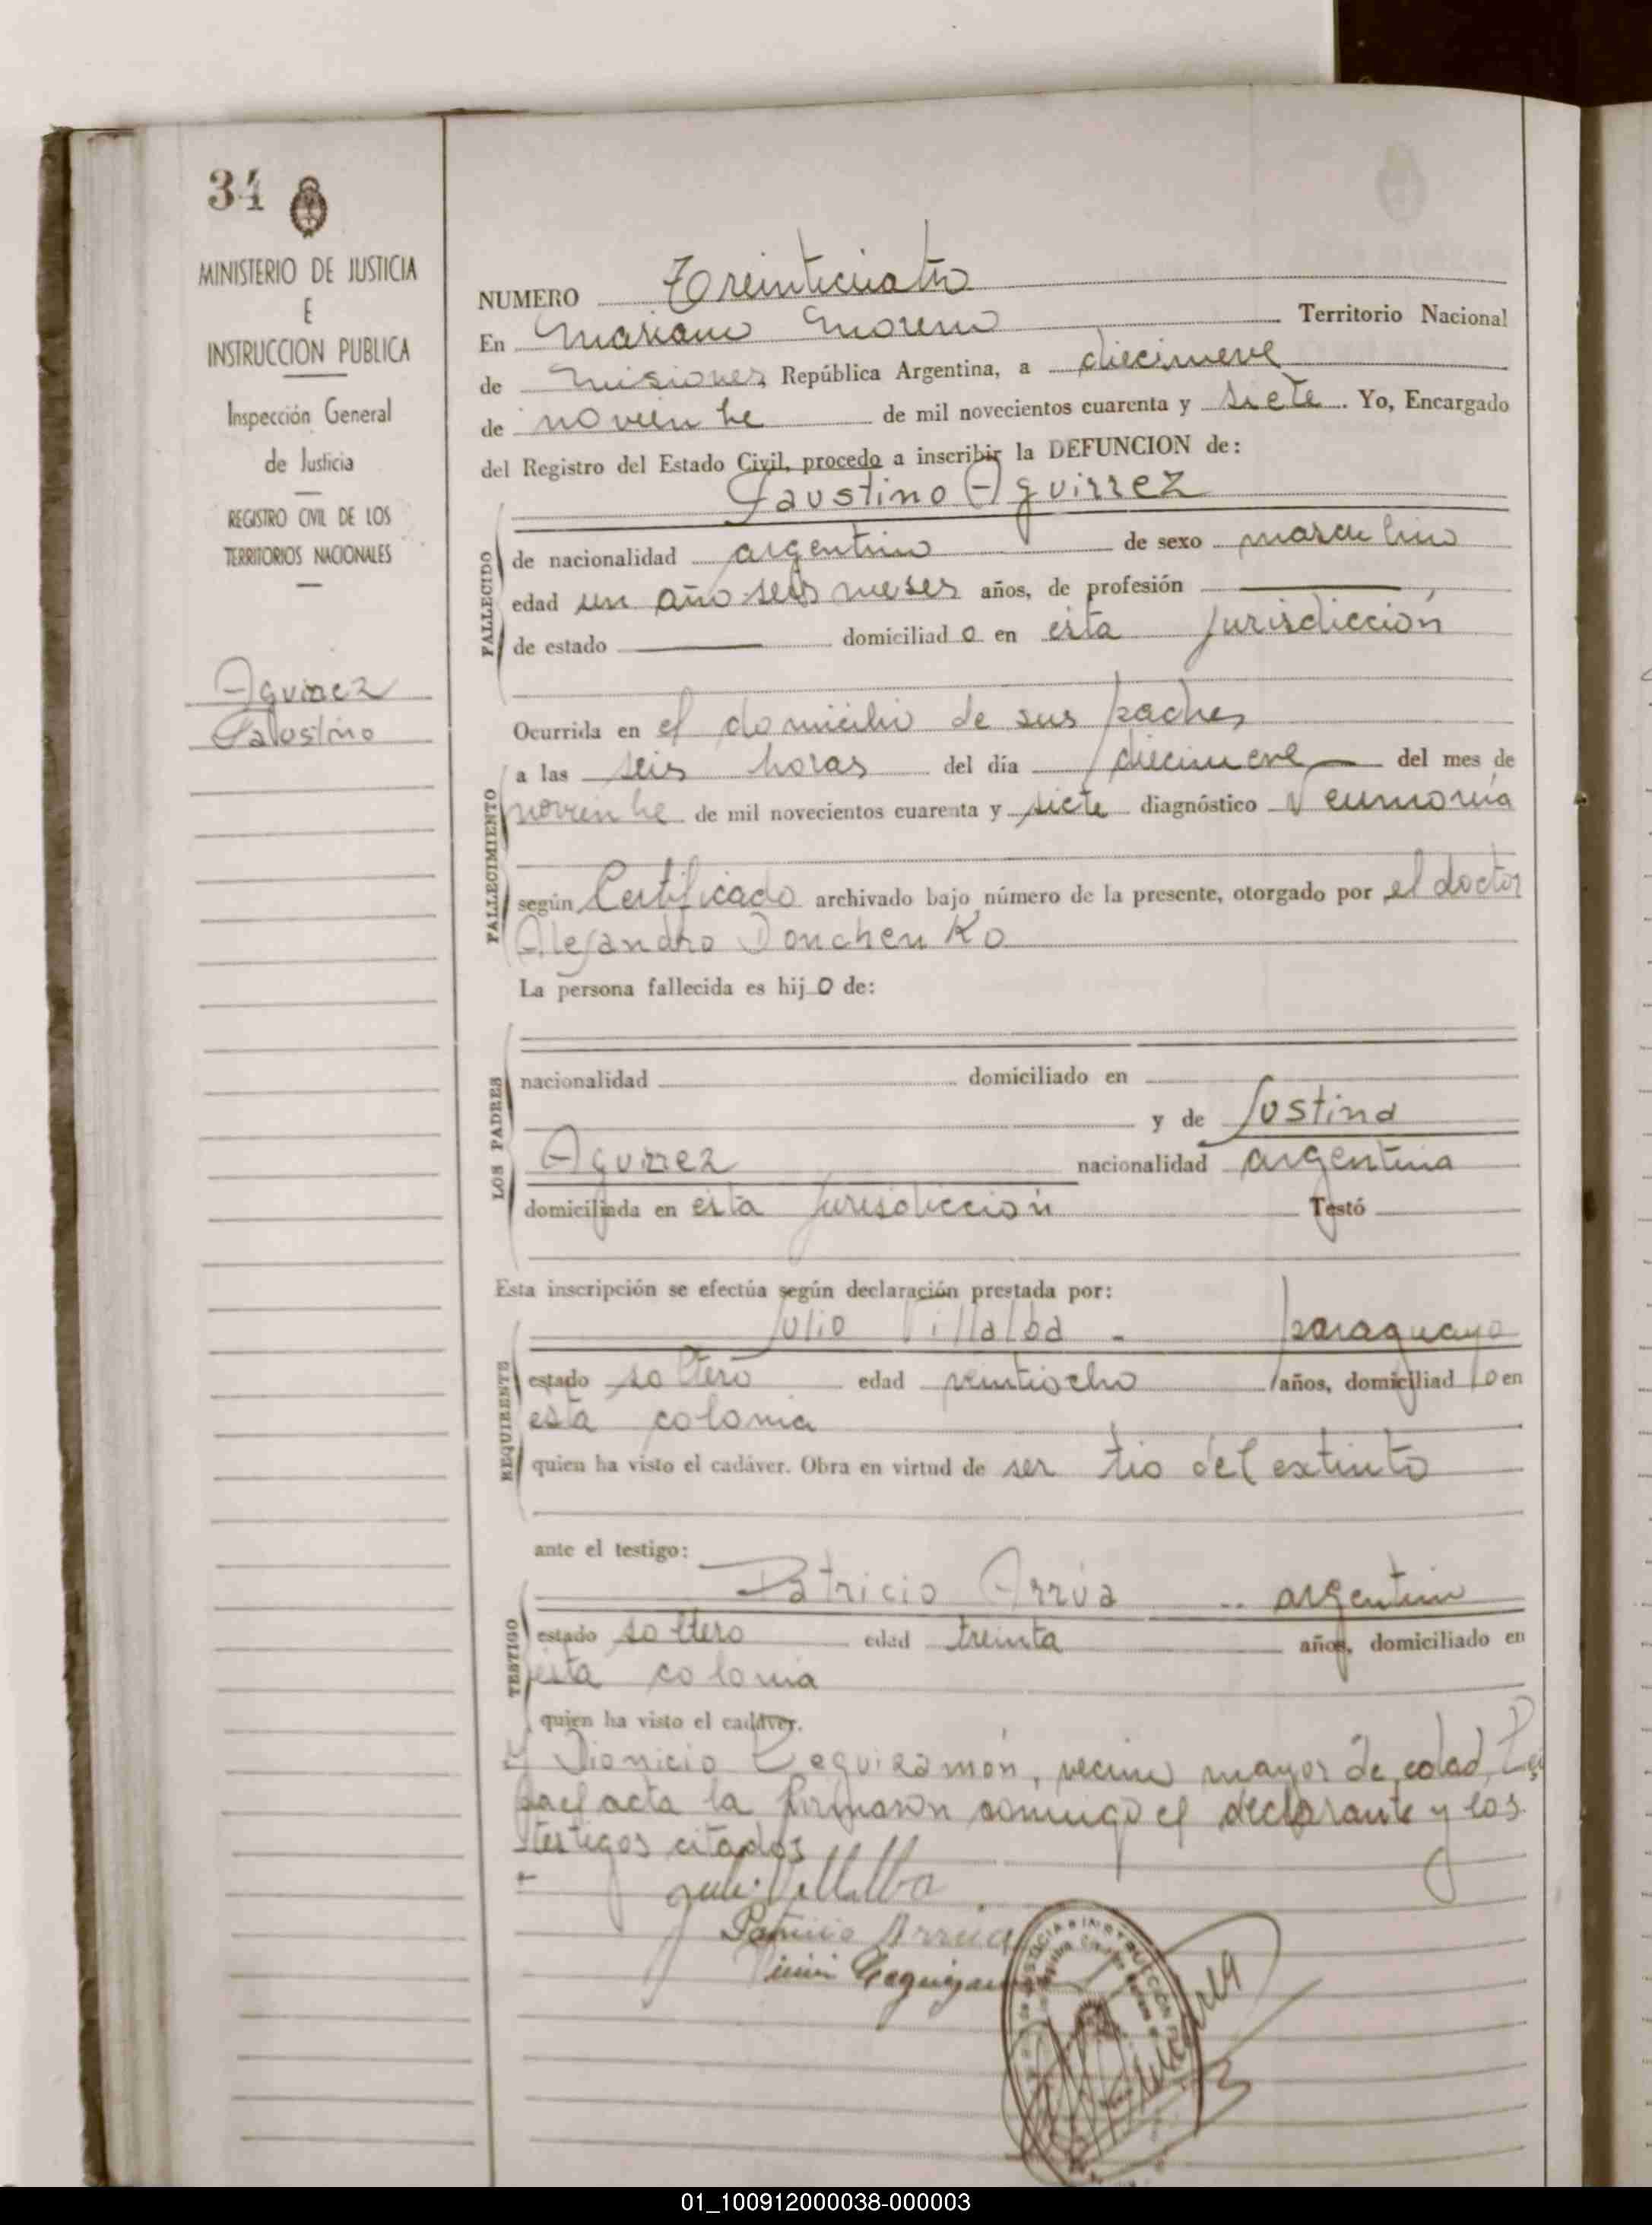 34
MINISTERIO DE JUSTICIA
E
INSTRUCCION PUBLICA
Inspección General
de Justicia
REGISTRO CIVIL DE LOS
TERRITORIOS NACIONALES
Aguirrez
Faustino
NUMERO Treinticuatro
En Mariano Moreno Territorio Nacional
de Misiones República Argentina, a diecinueve
de noviembre de mil novecientos cuarenta y siete. Yo, Encargado
del Registro del Estado Civil, procedo a inscribir la DEFUNCION de:
Faustino Aguirrez
FALLECIDO
de nacionalidad argentino de sexo masculino
edad un año seis meses años, de profesión
de estado domiciliado en esta jurisdicción
FALLECIMIENTO
Ocurrida en el domicilio de sus padres
a las seis horas del día diecinueve del mes de
noviembre de mil novecientos cuarenta y siete diagnóstico Neumonía
según Certificado archivado bajo número de la presente, otorgado por el doctor
Alejandro Donchenko
La persona fallecida es hijo de:
LOS PADRES
nacionalidad domiciliado en
y de Justina
Aguirrez nacionalidad argentina
domiciliada en esta jurisdicción Testó
Esta inscripción se efectúa según declaración prestada por:
REQUIRENTE
Julio Villalba - paraguayo
estado soltero edad veintiocho años, domiciliado en
esta colonia
quien ha visto el cadáver. Obra en virtud de ser tio del extinto
ante el testigo:
TESTIGO
Patricio Arrúa argentino
estado soltero edad treinta años, domiciliado en
esta colonia
quien ha visto el cadáver.
Y Dionicio Leguizamón, vecino mayor de edad,
acta la firmaron conmigo el declarante y los
testigos citados
Julio Villalba
Patricio Arrua
01_100912000038-000003